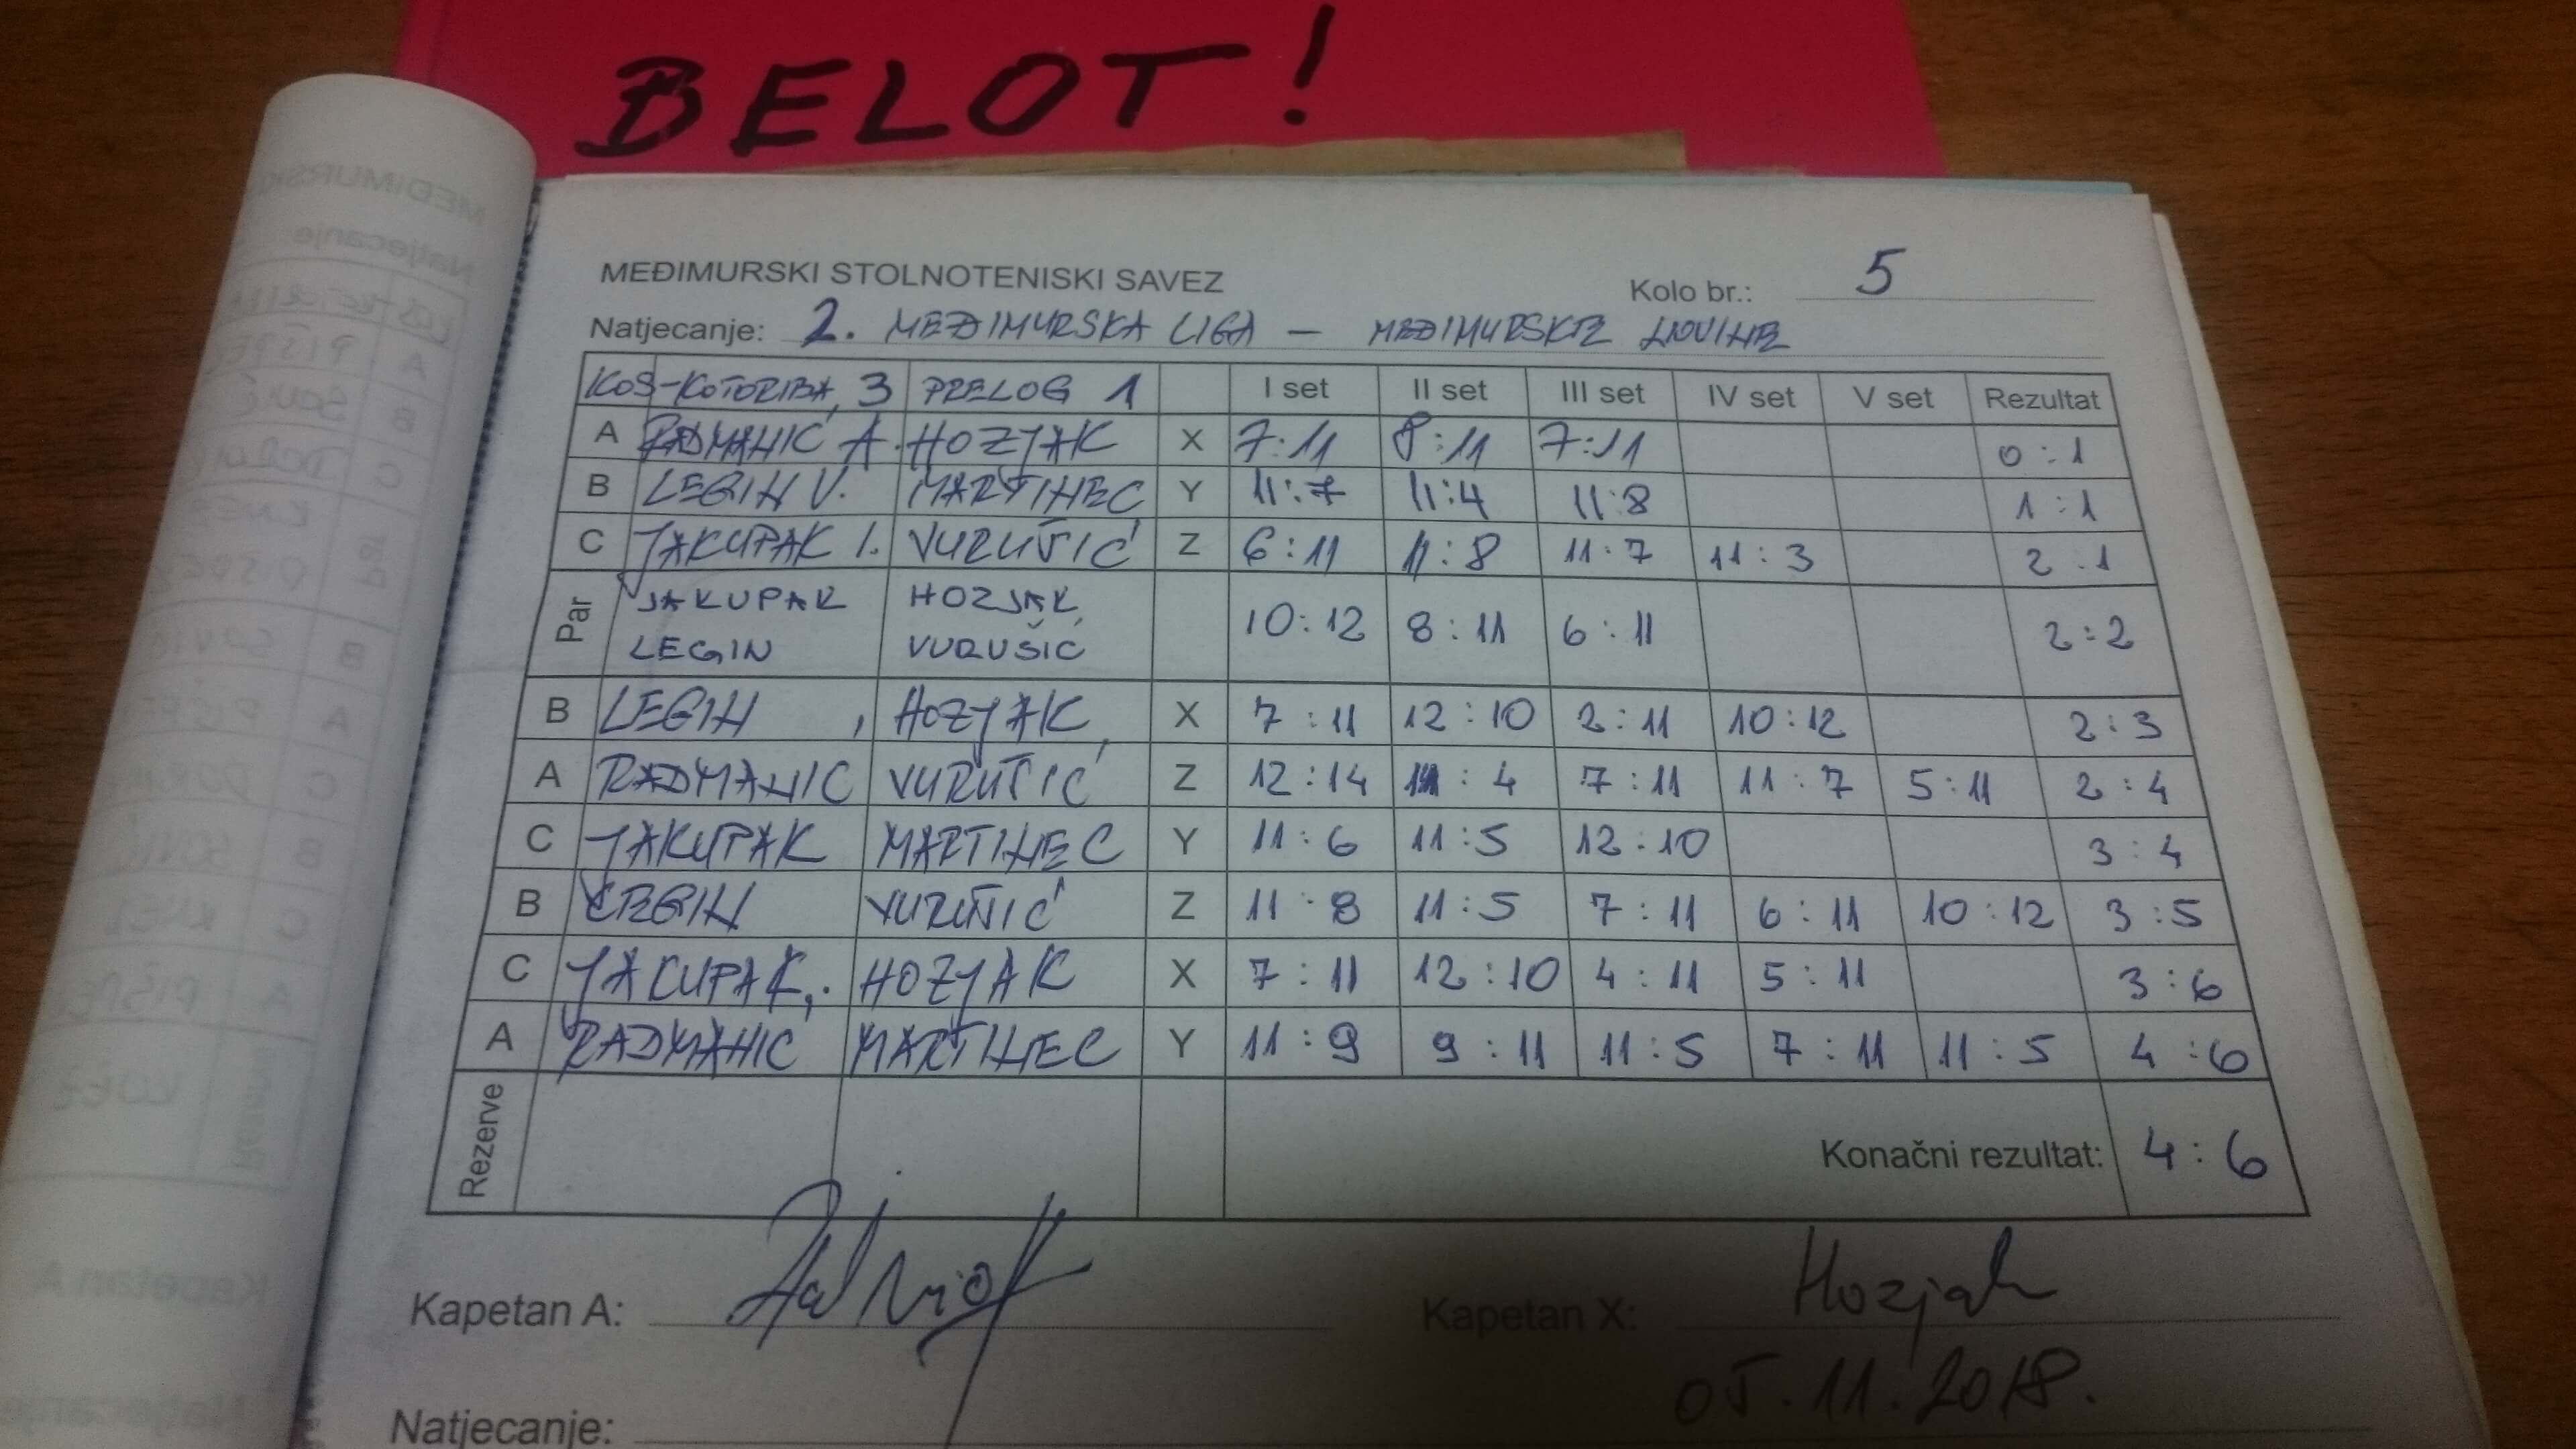 BELOT!
MEĐIMURSKI STOLNOTENISKI SAVEZ
Kolo br.: 5
Natjecanje: 2. MEĐIMURSKA LIGA – MEĐIMURSKE NOVINE
KOS-KOTORIBA 3 PRELOG 1 I set II set III set IV set V set Rezultat
A RADMANIĆ A. HOZJAK X 7:11 8:11 7:11 0:1
B LEGIN V. MARTINEC Y 11:7 11:4 11:8 1:1
C JAKUPAK I. VURUŠIĆ Z 6:11 11:8 11:7 11:3 2:1
Par JAKUPAK HOZJAK 10:12 8:11 6:11 2:2
LEGIN VURUŠIĆ
B LEGIN HOZJAK X 7:11 12:10 2:11 10:12 2:3
A RADMANIĆ VURUŠIĆ Z 12:14 11:4 7:11 11:7 5:11 2:4
C JAKUPAK MARTINEC Y 11:6 11:5 12:10 3:4
B LEGIN VURUŠIĆ Z 11:8 11:5 7:11 6:11 10:12 3:5
C JAKUPAK HOZJAK X 7:11 12:10 4:11 5:11 3:6
A RADMANIĆ MARTINEC Y 11:9 9:11 11:5 7:11 11:5 4:6
Rezerve
Konačni rezultat: 4:6
Kapetan A:
Kapetan X: Hozjak
05.11.2018.
Natjecanje: